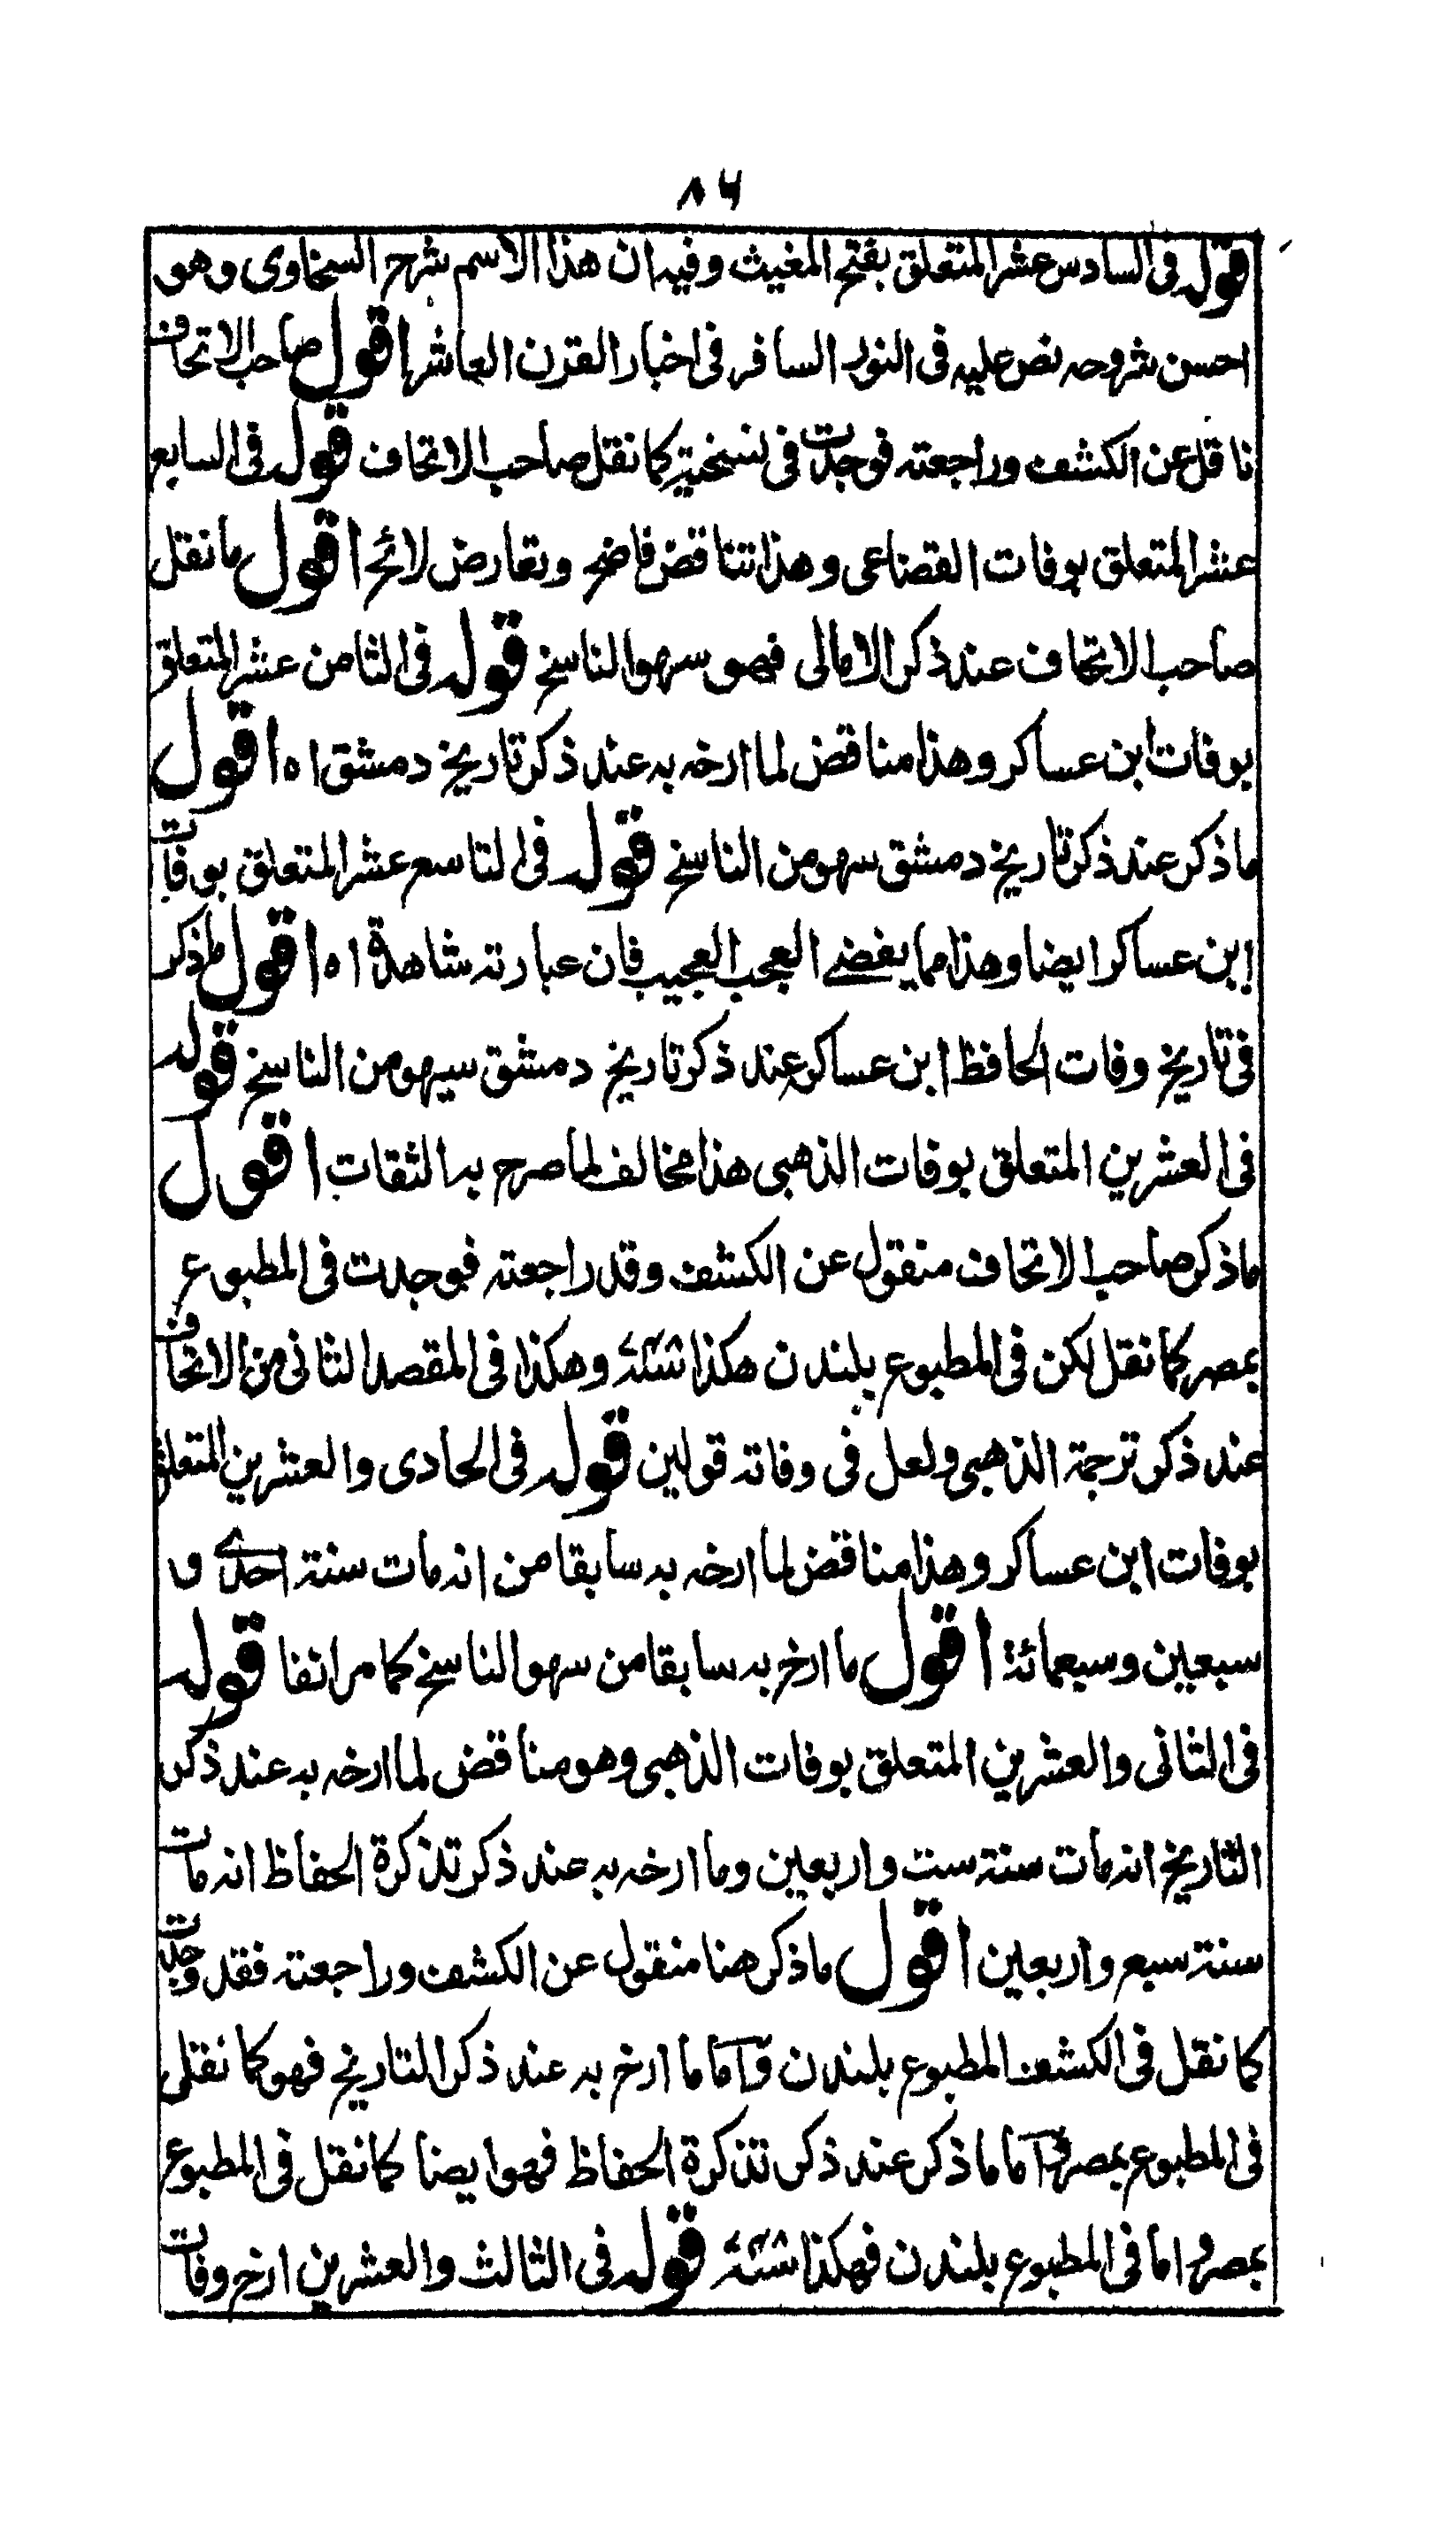 ٨٤
قوله فى السادس عشر المتعلق بفتح المغيث وفيه ان هذا الاسم شرح السخاوى وهو
احسن شروحه نص عليه فى النور السافر فى اخبار القرن العاشر اقول صاحب الاتحاف
ناقل عن الكشف وراجعته فوجدت فى نسخته كما نقل صاحب الاتحاف قوله فى السابع
عشر المتعلق بوفات القضاعى وهذا تناقض فاضح وتعارض لائح اقول ما نقل
صاحب الاتحاف عند ذكر الامالى فهو سهو الناسخ قوله فى الثامن عشر المتعلق
بوفات ابن عساكر وهذا مناقض لما ارخه به عند ذكر تاريخ دمشق اه اقول
ما ذكر عند ذكر تاريخ دمشق سهو من الناسخ قوله فى التاسع عشر المتعلق بوفات
ابن عساكر ايضا وهذا مما يفضے العجب العجيب فان عبارته شاهدة اه اقول ما ذكر
فى تاريخ وفات الحافظ ابن عساكر عند ذكر تاريخ دمشق سهو من الناسخ قوله
فى العشرين المتعلق بوفات الذهبى هذا مخالف لما صرح به الثقات اقول
ما ذكر صاحب الاتحاف منقول عن الكشف وقد راجعته فوجدت فى المطبوع
بمصر كما نقل لكن فى المطبوع بلندن هكذا وهكذا فى المقصد الثانى من الاتحاف
عند ذكر ترجمة الذهبى ولعل فى وفاته قولين قوله فى الحادى والعشرين المتعلق
بوفات ابن عساكر وهذا مناقض لما ارخه به سابقا من انه مات سنة احدے و
سبعين وسبعمائة اقول ما ارخ به سابقا من سهو الناسخ كما مر انفا قوله
فى الثانى والعشرين المتعلق بوفات الذهبى وهو مناقض لما ارخه به عند ذكر
التاريخ انه مات سنة ست واربعين وما ارخه به عند ذكر تذكرة الحفاظ انه مات
سنة سبع واربعين اقول ما ذكر هنا منقول عن الكشف وراجعته فقد وجدت
كما نقل فى الكشف المطبوع بلندن واما ما ارخ به عند ذكر التاريخ فهو كما نقل
فى المطبوع بمصر واما ما ذكر عند ذكر تذكرة الحفاظ فهو ايضا كما نقل فى المطبوع
بمصر واما فى المطبوع بلندن فهكذا قوله فى الثالث والعشرين ارخ وفات